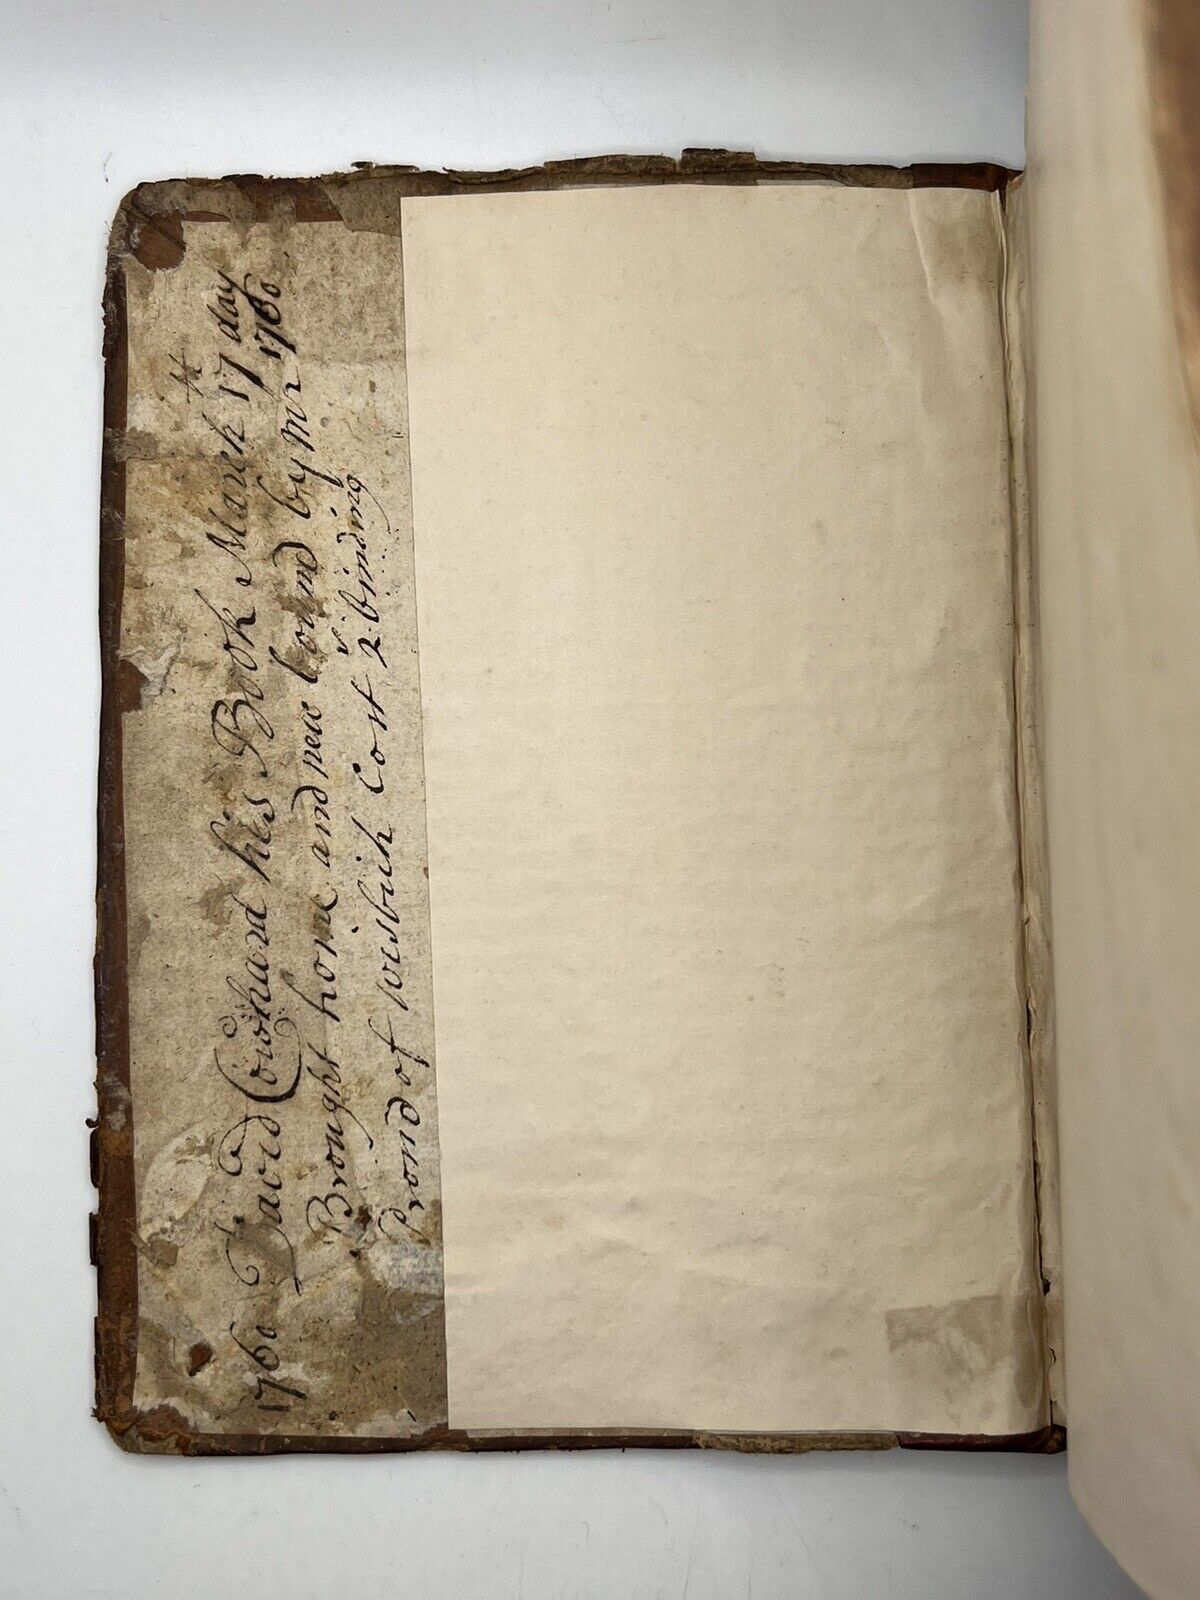 1760 David Cowhard his Book March 17th day 1760
Brought home and new bound by Mr
Prond of wisbich Cost 2s binding